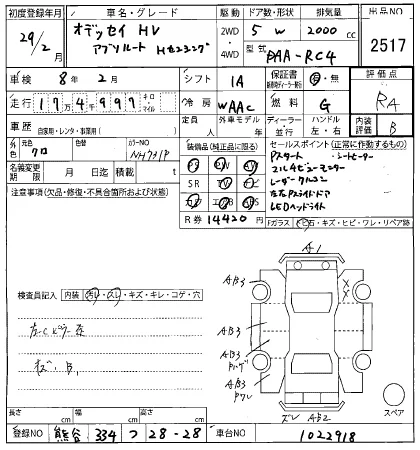 初度登録年月 車名・グレード 駆動 ドア数・形状 排気量 出品NO
29/2 オデッセイ HV 2WD 5 W 2000 cc 2517
アブソルート Hセンシング 4WD 型式 DAA-RC4
車検 8年 2月 シフト IA 保証書 有・無 評価点
走行 17万4,999 キロ・マイル 冷房 WAAC 燃料 G RA
車歴 自家用・レンタ・事業用( ) 定員 人 外車モデル 年 ディーラー・並行 ハンドル 左・右 内装評価 B
元色 クロ 色替 カラーNO NH731P 装備品(純正品に限る) セールスポイント(正常に作動するもの)
名義変更期限 月 日迄 積載 t
Pスタート シートヒーター
マルチビューモニター
レーダークルコン
左右Pスライドドア
LEDヘッドライト
SR TV
R券 14420 円
注意事項(欠品・修復・不具合箇所および状態)
Fガラス 飛石・キズ・ヒビ・ワレ・リペア跡
検査員記入 内装 汚れ・スレ・キズ・キレ・コゲ・穴
A1
AB3
AB3
AB3
AB3
スペア
AB2
長さ cm 幅 cm 高さ cm
登録NO 熊谷 334 つ 28-28 車台NO 1022918